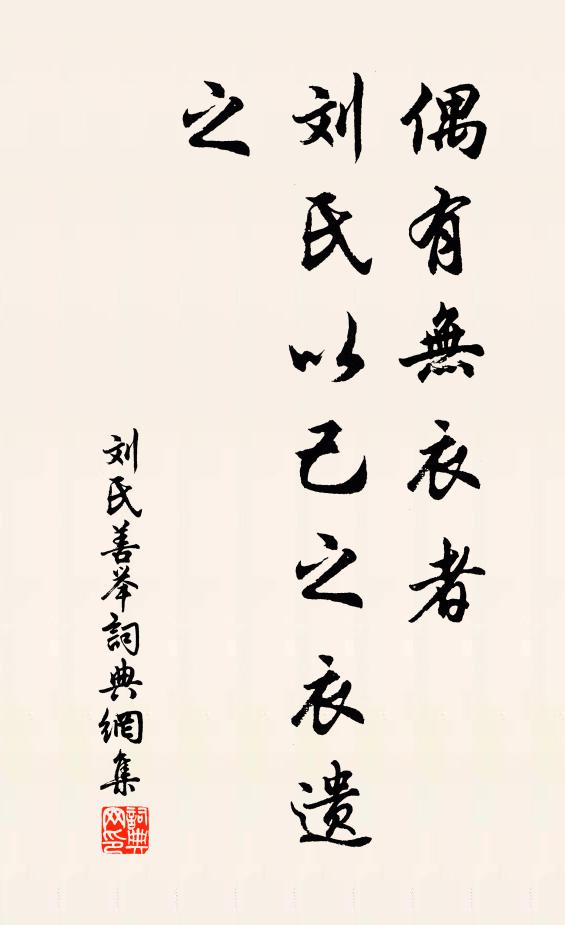 偶有無衣者
刘氏以己之衣遗
之
刘氏善举詞典網集
詞典网印